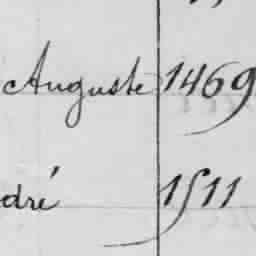 Auguste 1469
dré 1511